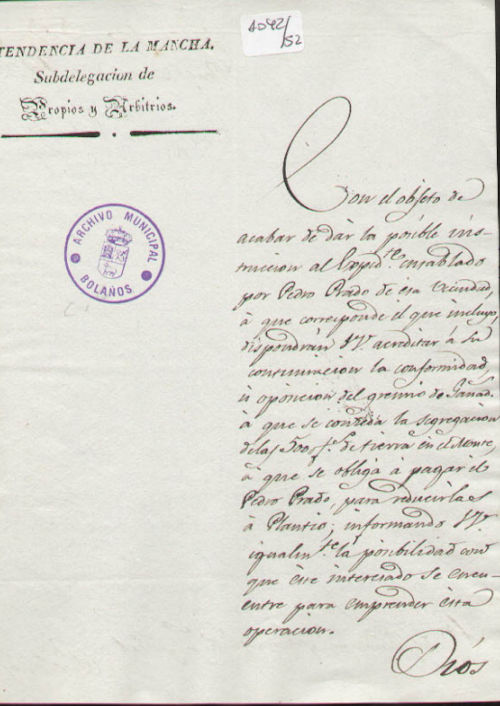 AD42/52
TENDENCIA DE LA MANCHA.
Subdelegacion de
Propios y Arbitrios.
ARCHIVO MUNICIPAL
BOLAÑOS
Con el objeto de
acabar de dàr la posible ins-
truccion al Exped.te entablado
por Pedro Prado de esa vecindad,
à que corresponde el que incluyo,
dispondràn VV. acreditar à su
continuacion la conformidad,
ù oposicion del gremio de Ganad.
à que se conceda la segregacion
de las 500 f.s de tierra en el Monte,
à que se obliga à pagar el
Pedro Prado, para reducirlas
à Plantio; informando VV.
igualm.te la posibilidad con
que èste interesado se encu-
entre para emprender èsta
operacion.
Dios